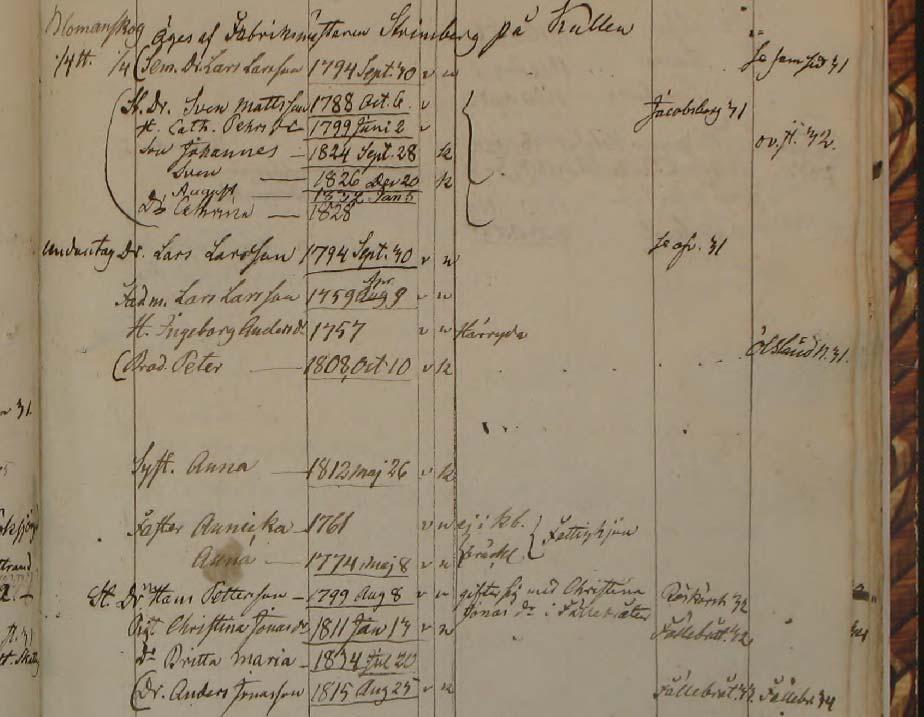 Blomanskog Äges af Fabrikmästaren Strimberg på Kullen
1/4 tt. 1/4 (Sem. Dr. Lars Larsson 1794 Sept. 30 v n se sam sid 31
(St. Dr. Sven Mattsson 1788 Oct. 6 v Jacobsberg 31
H. Cath. Pehrs Dr 1799 Juni 2 v
Son Johannes — 1824 Sept. 28 k ov. fl. 32
Sven — 1826 Dec 20 k
August — 1832 Jan 5
Dr Cathrina — 1828
undantag Dr. Lars Larsson 1794 Sept. 30 v n se of. 31
Fad m. Lars Larsson 1759 Aug 9 v n
Apr
H. Ingeborg Anders dr 1757 v n Härryda
(Brod. Peter — 1808 Oct 10 v k Ölslund N. 31.
Syst. Anna — 1812 maj 26 v k
Faster Annicka — 1761 v n ej i kb. Fattighjon
Anna — 1774 maj 8 v n bräckl
St. Dr. Hans Pettersson — 1799 Aug 8 v n gifter sig med Christina 32
Jonas dr i Fällebråten
Pig. Christina Jonasdr 1811 Jan 13 v n Fällebråt. 32
Dr Britta Maria — 1834 Jul 20
(Dr. Anders Jonasson 1815 Aug 25 v k Fällebråt. 33 Fällebr 34